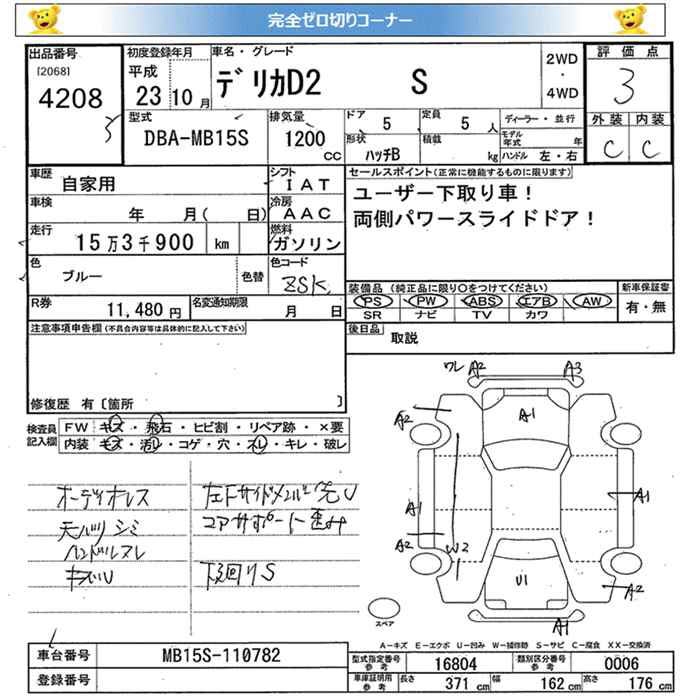 完全ゼロ切りコーナー
出品番号
[2068]
4208
初度登録年月
平成
23 10 月
車名・グレード
デリカD2 S
2WD
・
4WD
評価点
3
型式
DBA-MB15S
排気量
1200
CC
ドア
5
定員
5 人
形状
ハッチB
積載
kg
ディーラー・並行
モデル年式 年
ハンドル 左・右
外装 内装
C C
車歴
自家用
シフト
IAT
車検
年 月( 日)
冷房
AAC
走行
15万3千900 km
燃料
ガソリン
色
ブルー
色替
色コード
ZSK
R券
11,480 円
名変通知期限
月 日
セールスポイント(正常に機能するものに限ります)
ユーザー下取り車!
両側パワースライドドア!
装備品 (純正品に限り○をつけてください)
PS PW ABS エアB AW
SR ナビ TV カワ
新車保証書
有・無
後日品
取説
注意事項申告欄(不具合内容等は具体的に記入して下さい)
修復歴 有〔箇所 〕
検査員記入欄
FW キズ・飛石・ヒビ割・リペア跡・×要
内装 キズ・汚レ・コゲ・穴・スレ・キレ・破レ
オーディオレス
天ハリ シミ
ハンドルスレ
キズU
左Fサイドメンバー先U
コアサポート歪み
下廻りS
ワレ A2 A3
A1
A2
A1
A1
A2
W2
U1
A2
A1
スペア
A-キズ E-エクボ U-凹み W-補修跡 S-サビ C-腐食 XX-交換済
車台番号
MB15S-110782
登録番号
型式指定番号
参考
16804
類別区分番号
参考
0006
車庫証明用
参考
長さ 371 cm 幅 162 cm 高さ 176 cm